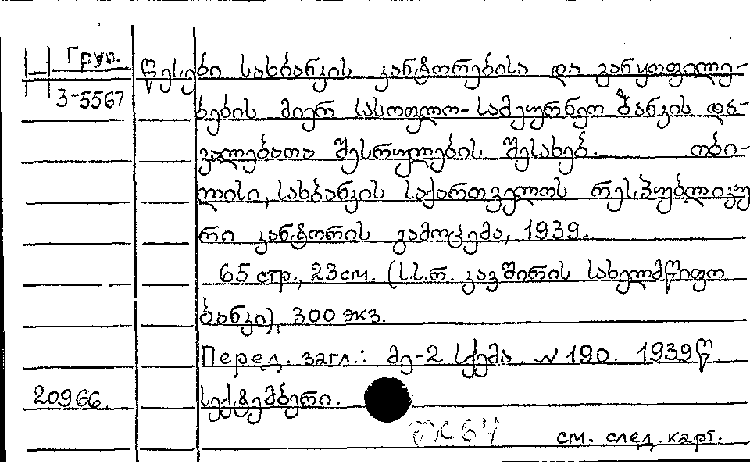 Груз.
3-5567
წესები სახბანკის კანტორებისა და განყოფილე-
ბების მიერ სასოფლო-სამეურნეო ბანკის და-
ვალებათა შესრულების შესახებ. თბი-
ლისი, სახბანკის საქართველოს რესპუბლიკუ
რი კანტორის გამოცემა, 1939.
65 стр., 23 см. (სსრ. კავშირის სახელმწიფო
ბანკი), 300 экз.
Перед. загл.: მე-2 სქემა N 190. 1939წ.
20966. სექტემბერი.
см. след. карт.